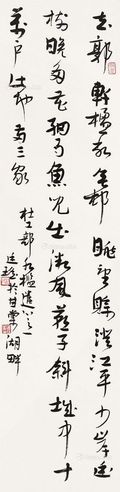 去郭軒楹敞無村眺望賒澄江平少岸幽
樹晚多花細雨魚兒出微風燕子斜城中十
萬户此地兩三家
杜工部水檻遣心之一
於甘棠湖畔